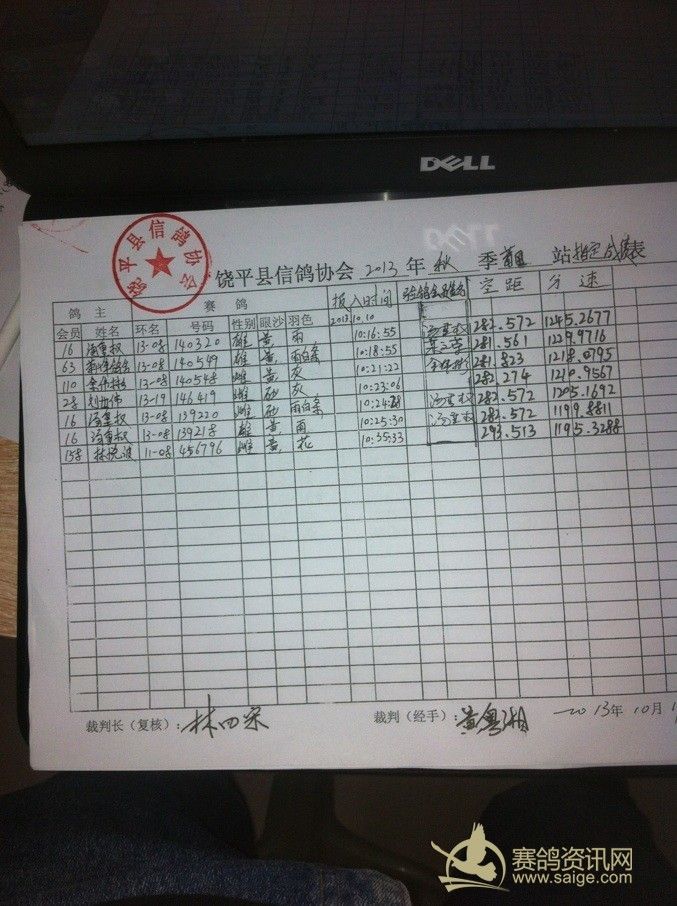 DELL
饶平县信鸽协会
饶平县信鸽协会 2013 年 秋 季 站指定成绩表
鸽 主 赛 鸽 报入时间 验鸽 空 距 分 速
会员 姓名 环名 号码 性别 眼沙 羽色 2013.10.10
16 汤重权 13-08 140320 雄 黄 雨 10:16:55 汤重权 282.572 1245.2677
63 13-08 140549 雄 黄 雨白条 10:18:55 281.561 1229.9716
110 13-08 140548 雌 黄 灰 10:21:22 281.823 1218.0795
28 刘世伟 13-19 146419 雌 砂 灰 10:23:06 282.274 1210.9567
16 汤重权 13-08 139220 雌 砂 雨白条 10:24:28 汤重权 282.572 1205.1692
16 汤重权 13-08 139218 雄 黄 雨 10:25:30 汤重权 282.572 1199.8811
158 林悦波 11-08 456796 雌 黄 花 10:35:33 293.513 1195.3288
裁判长（复核）： 林四宋 裁判（经手）： 黄粤湘 2013年 10月
赛鸽资讯网
www.saige.com